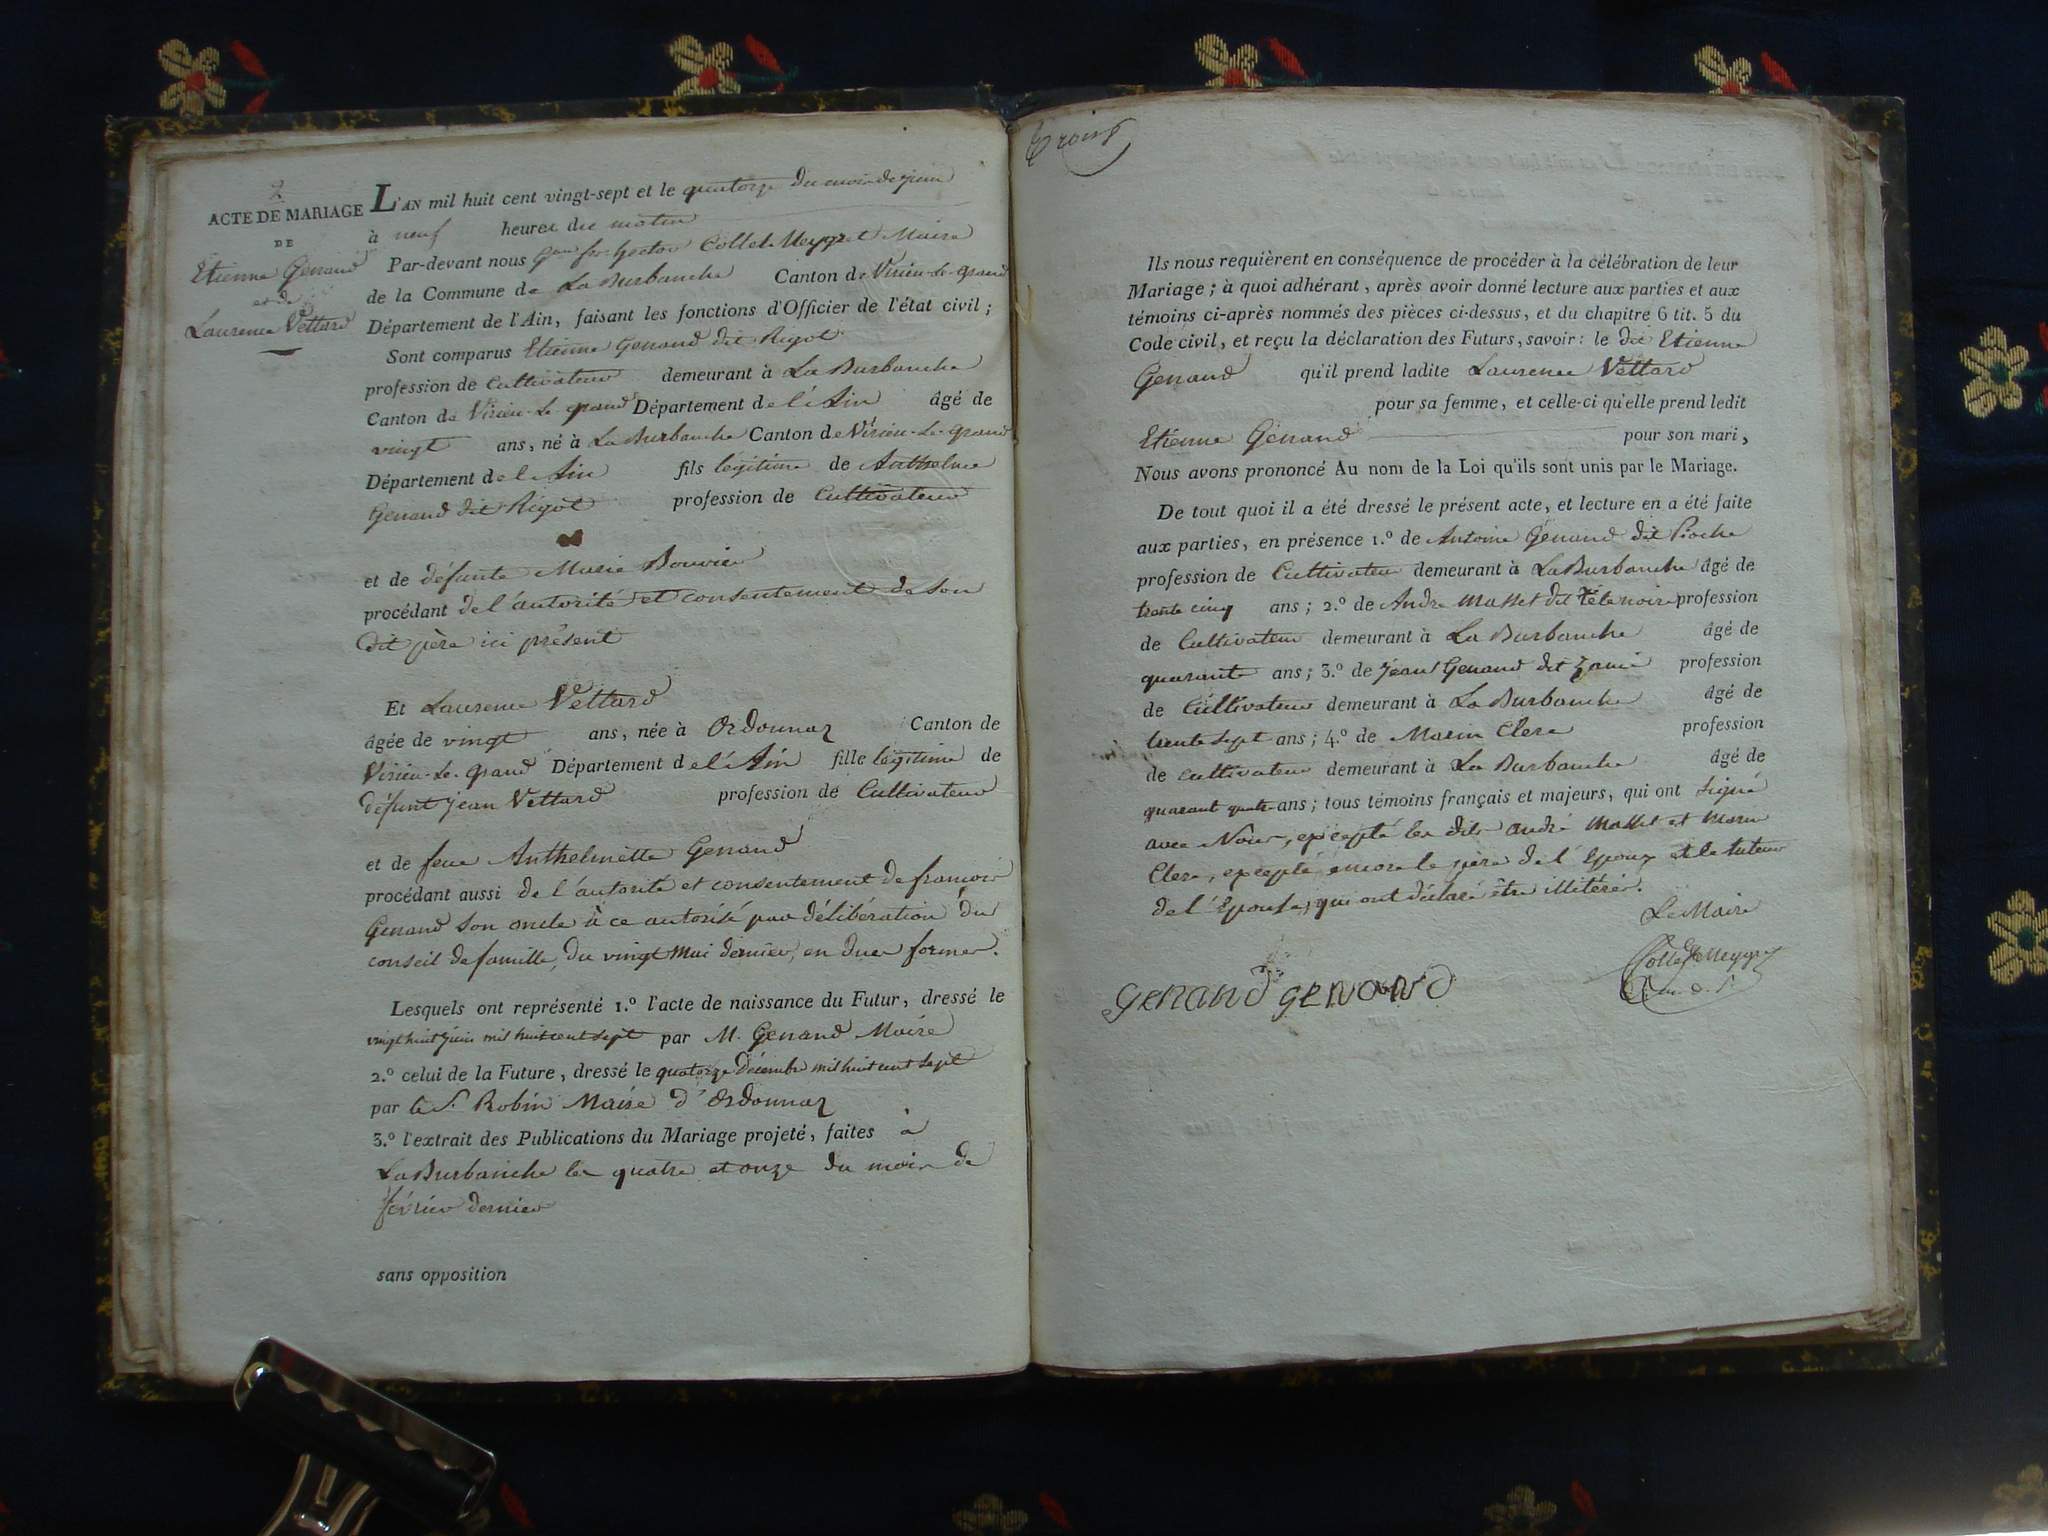 2
ACTE DE MARIAGE
DE
Etienne Genand
et de
Laurence Vettard
L'AN mil huit cent vingt-sept et le quatorze du mois de juin
à neuf heures du matin
Par-devant nous Hector Collet-Meygret Maire
de la Commune de La Burbanche Canton de Virieu-Le-grand
Département de l'Ain, faisant les fonctions d'Officier de l'état civil;
Sont comparus Etienne Genand dit Rigot
profession de Cultivateur demeurant à La Burbanche
Canton de Virieu-Le grand Département de l'Ain âgé de
vingt ans, né à La Burbanche Canton de Virieu-Le-grand
Département de l'Ain fils légitime de Anthelme
Genand dit Rigot profession de Cultivateur
et de défunte Marie Bouvier
procédant de l'autorité et consentement de son
dit père ici présent
Et Laurence Vettard
âgée de vingt ans, née à Ordonnaz Canton de
Virieu-Le-grand Département de l'Ain fille légitime de
défunt jean Vettard profession de Cultivateur
et de feue Anthelmette Genand
procédant aussi de l'autorité et consentement de françois
Genand son oncle à ce autorisé par délibération du
conseil de famille, du vingt mai dernier, en due formes.
Lesquels ont représenté 1.º l'acte de naissance du Futur, dressé le
vingt huit juin mil huit cent sept par M. Genand Maire
2.º celui de la Future, dressé le quatorze décembre mil huit cent sept
par le S. Robin Maire d'Ordonnaz
3.º l'extrait des Publications du Mariage projeté, faites à
La Burbanche les quatre et onze du mois de
février dernier
sans opposition
trois
Ils nous requièrent en conséquence de procéder à la célébration de leur
Mariage; à quoi adhérant, après avoir donné lecture aux parties et aux
témoins ci-après nommés des pièces ci-dessus, et du chapitre 6 tit. 5 du
Code civil, et reçu la déclaration des Futurs, savoir: le dit Etienne
Genand qu'il prend ladite Laurence Vettard
pour sa femme, et celle-ci qu'elle prend ledit
Etienne Genand pour son mari,
Nous avons prononcé Au nom de la Loi qu'ils sont unis par le Mariage.
De tout quoi il a été dressé le présent acte, et lecture en a été faite
aux parties, en présence 1.º de Antoine Genand dit Pioche
profession de Cultivateur demeurant à La Burbanche âgé de
trente cinq ans; 2.º de André Masset dit Tête noire profession
de Cultivateur demeurant à La Burbanche âgé de
quarante ans; 3.º de jean Genand dit profession
de Cultivateur demeurant à La Burbanche âgé de
trente sept ans; 4.º de Marin Clerc profession
de cultivateur demeurant à La Burbanche âgé de
quarant quatre ans; tous témoins français et majeurs, qui ont signé
avec Nous, excepté les dits andré Masset et Marin
Clerc, excepté encore le père de l'Epoux et le tuteur
de l'Epouse, qui ont déclaré être illitérés.
Le Maire
Collet Meygret
GENAND GENAND